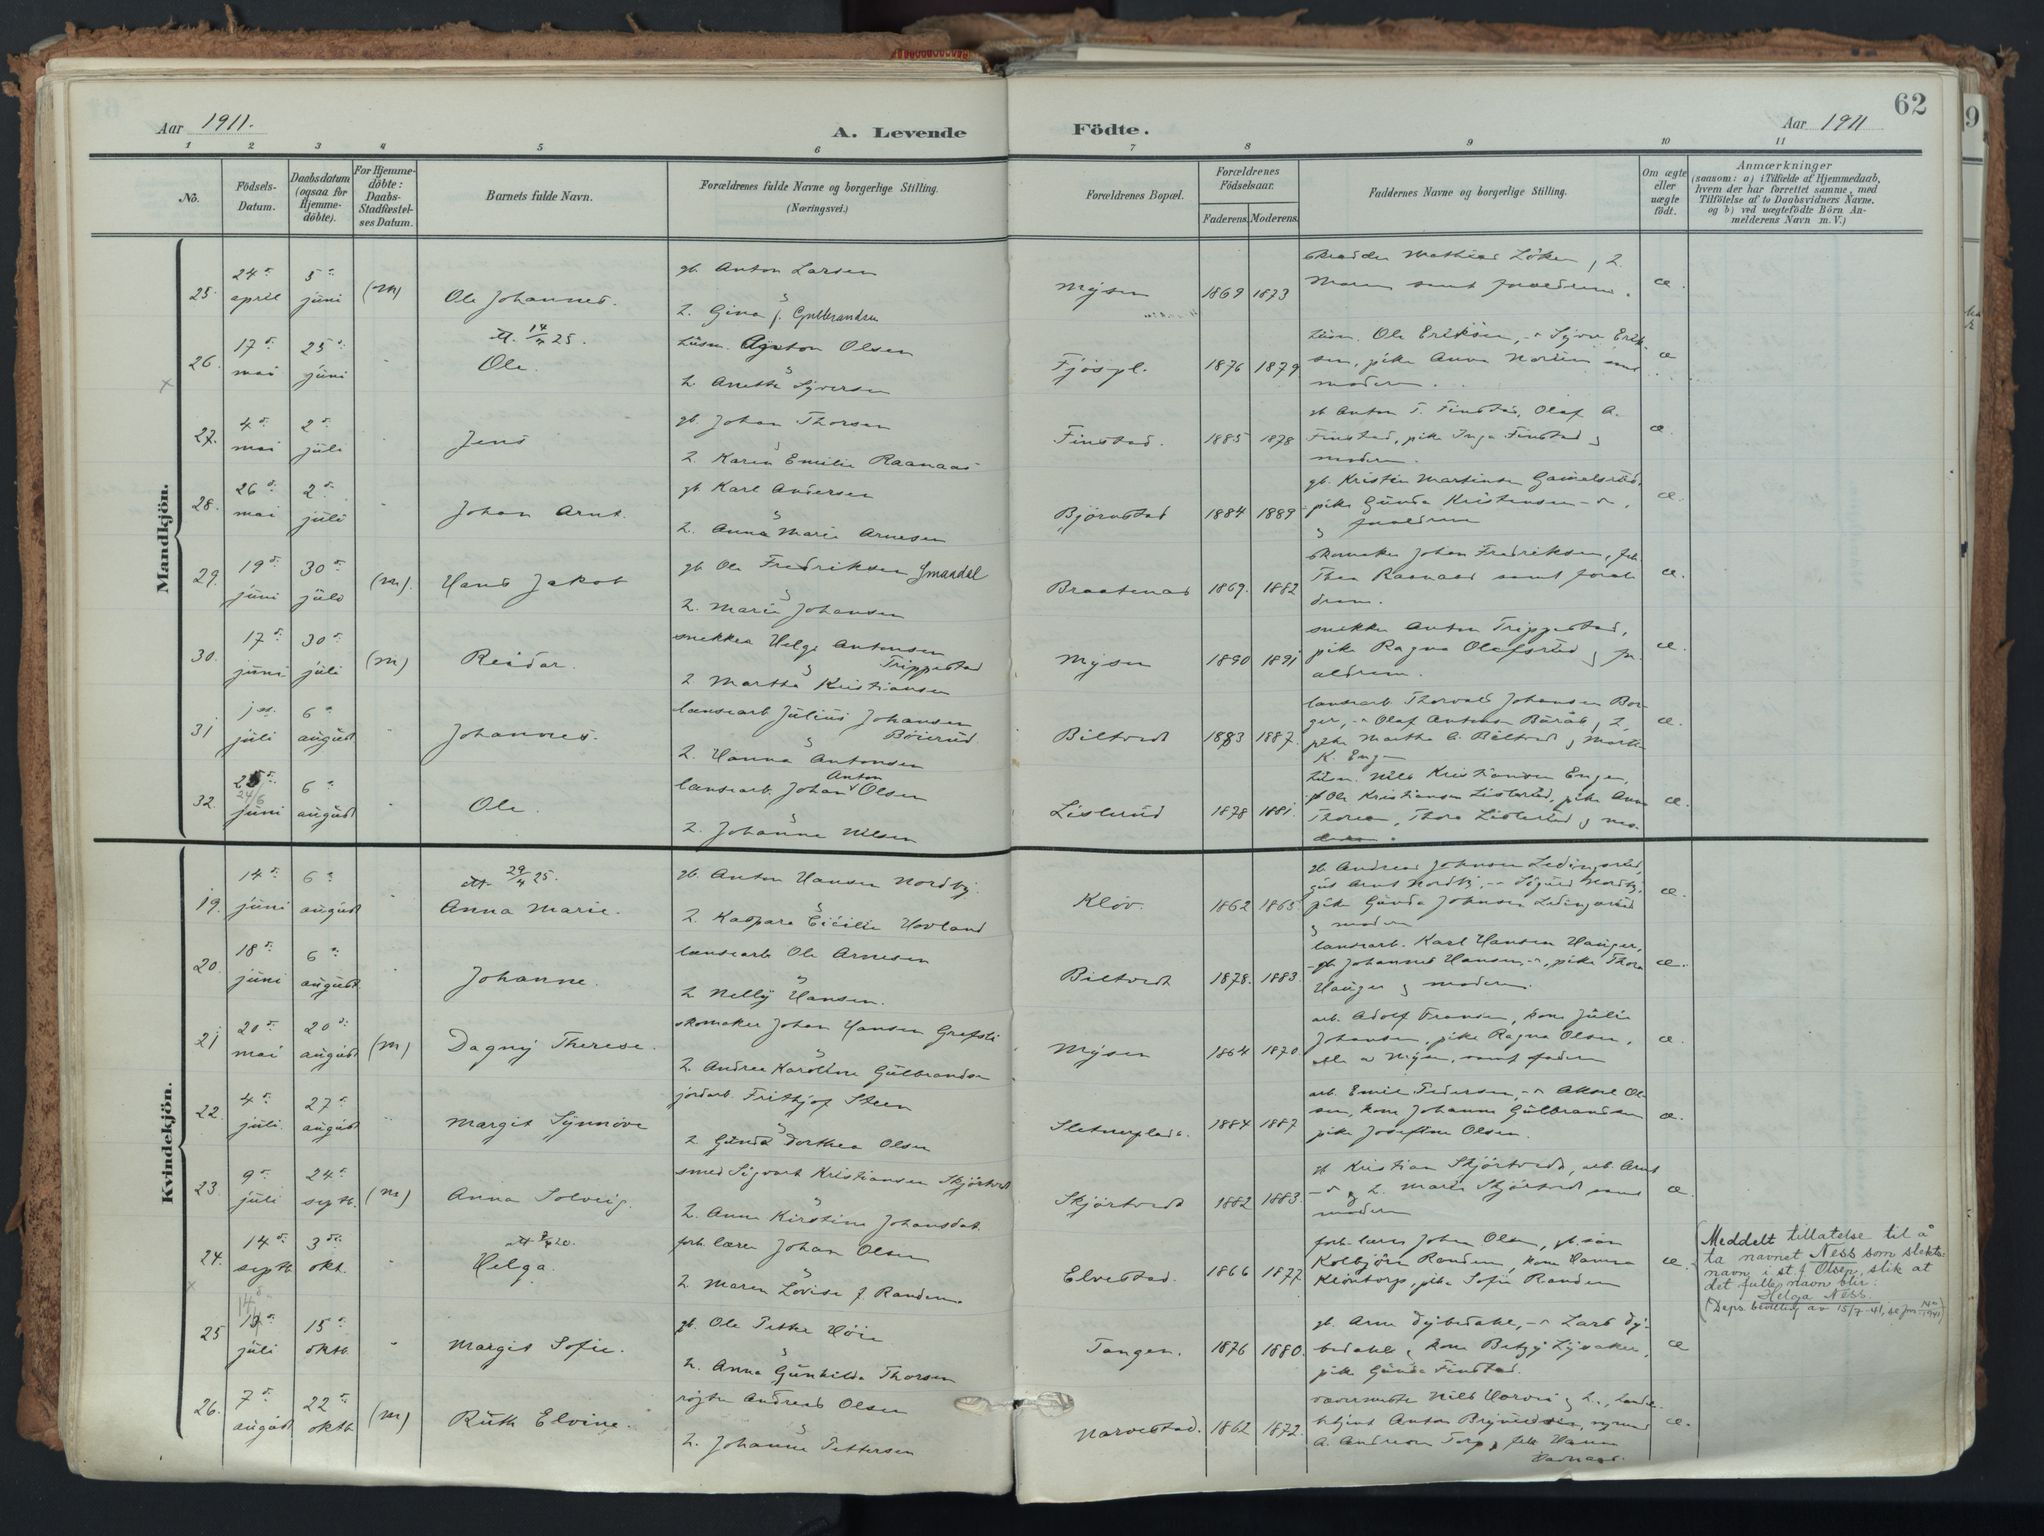 62
Aar 1911.
A. Levende Födte.
Aar 1911
1 2 3 4 5 6 7 8 9 10 11
No.
Födsels-
Datum.
Daabsdatum
(ogsaa for
Hjemme-
döbte).
For Hjemme-
döbte:
Daabs-
Stadfæstel-
ses Datum.
Barnets fulde Navn.
Forældrenes fulde Navne og borgerlige Stilling.
(Næringsvei.)
Forældrenes Bopæl.
Forældrenes
Födselsaar.
Faderens. Moderens.
Faddernes Navne og borgerlige Stilling.
Om ægte
eller
uægte
födt.
Anmærkninger
(saasom: a) i Tilfælde af Hjemmedaab,
hvem der har forrettet samme, med
Tilföielse af to Daabsvidners Navne.
og b) ved uægtefödte Börn An-
melderens Navn m. V.)
Mandkjön.
25. 24de april 5te juni (M) Ole Johannes.
gb. Anton Larsen
& Gina f. Gulbrandsen
Mysen 1869 1873
Mathias Löken, &
Maren samt forældrene. æ.
26. 17de mai 25de juni
att. 14/4 25.
Ole.
husm. Anton Olsen
& Anette Syversen
Fjöspl. 1876 1879
husm. Ole Eriksen, Syver Erik-
sen, pike Anna
moderen. æ
27. 4de mai 2den juli Jens
gb. Johan Thorsen
& Karen Emilie Raanaas
Finstad. 1885 1878
gb Anton T. Finstad, Olaf A.
Finstad, pike Inga Finstad &
moderen. æ.
28. 26de mai 2den juli Johan Arnt.
gb. Karl Andersen
& Anna Marie Arnesen
Björnstad 1884 1889
gb. Kristian Martinsen
pike Gunda Kristensen
& forældrene æ.
29. 19de juni 30te juli (M). Hans Jakob
gb. Ole Fredriksen Smaadal
& Marie Johansen
Braatenes 1869. 1882
skomaker Johan Fredriksen, frk
Thea Raanaas samt foræl
drene. æ.
30. 17de juni 30te juli (M) Reidar.
snekker Helge Antonsen
Trippestad
& Martha Kristiansen
Mysen 1890 1891
snekker Anton Trippestad,
pike Ragna Olafsrud & for
ældrene. æ.
31 1ste juli 6te august Johannes.
lænsearb. Julius Johansen
Böierud
& Hanna Antonsen
Biltvedt 1883 1887.
lænsearb. Thorvald Johansen Bor
ger, Olaf Antonsen &
pike Martha A. Biltvedt &
K. Eng æ.
32. 25de 24/6 juni 6te august Ole.
lænsearb. Johan Anton Olsen
& Johanne Nilsen
Lislerud 1878 1881.
husm. Nils Kristiansen Enger,
Ole Kristiansen Lislerud, pike Anne
Thoresen, Thora Lislerud & mo-
deren. æ.
Kvindekjön.
19. 14de juni 6te august
att. 29/4 25.
Anna Marie.
gb. Anton Hansen Nordby.
& Kaspara Cicilie Hovland
Klöv. 1862 1865
gb. Andreas Johnsen
Arnt Nordby, Sigurd Nordby,
pike Gunda Johnsen
& moderen æ.
20. 18de juni 6te august Johanne.
lænsearb. Ole Arnesen
& Nelly Hansen.
Biltvedt 1878. 1883.
lænsearb. Karl Hansen Hauger,
gb. Johannes Hansen, pike Thora
Hauger & moderen. æ.
21 20de mai 20de august (M) Dagny Therese.
skomaker Johan Hansen Grefsli
& Andrea Karoline Gulbrandsen
Mysen 1864 1870.
arb. Adolf Fransen, kone Julie
Johansen, pike Ragna Olsen,
alle av Mysen, samt faderen æ.
22. 4de juli. 27de august Margit Synnöve
jordarb. Frithjof Steen
& Gunda Dorthea Olsen
Sletnerplads. 1884 1887
arb. Emil Pedersen, Aksel Ol
sen, kone Johanne Gulbrandsen
pike Josefine Olsen. æ.
23. 9de juli 24de septb. (M) Anna Solveig.
smed Sigvart Kristiansen Skjörtvedt
& Anne Kirstine Johansdat.
Skjörtvedt 1882 1883.
gb Kristian Skjörtvedt, arb. Arnt
& Marie Skjörtvedt samt
moderen æ.
24. 14de septb 3die okt.
Helga.
forh. lærer Johan Olsen
& Maren Lovise f. Randem
Elvestad. 1866 1877
forh. lærer Johan Olsen, gb. sön
Kolbjörn Randem, kone Hanna
Klöntorp, pike Sofie Randem æ.
Meddelt tillatelse til å
ta navnet Ness som slekts-
navn i st. f. Olsen slik at
det fulle navn blir:
Helga Ness
(Deps. bevilling av 15/7-41, se jnr. 1941)
25 juli 15de oktb. Margit Sofie.
gb. Ole Petter Höie
& Anna Gunhilda Thorsen
Tangen. 1876 1880.
gb. Arne Dybedahl, Lars Dy-
bedahl & kone Betzy Lysaker,
pike Gunda Finstad. æ
26. 7de august 22de oktb (M) Ruth Elvine.
røgter Andreas Olsen
& Johanne Pettersen
Narvestad. 1862 1872.
Nils &
Anton
A. Andresen Torp, frk Hanna
æ.